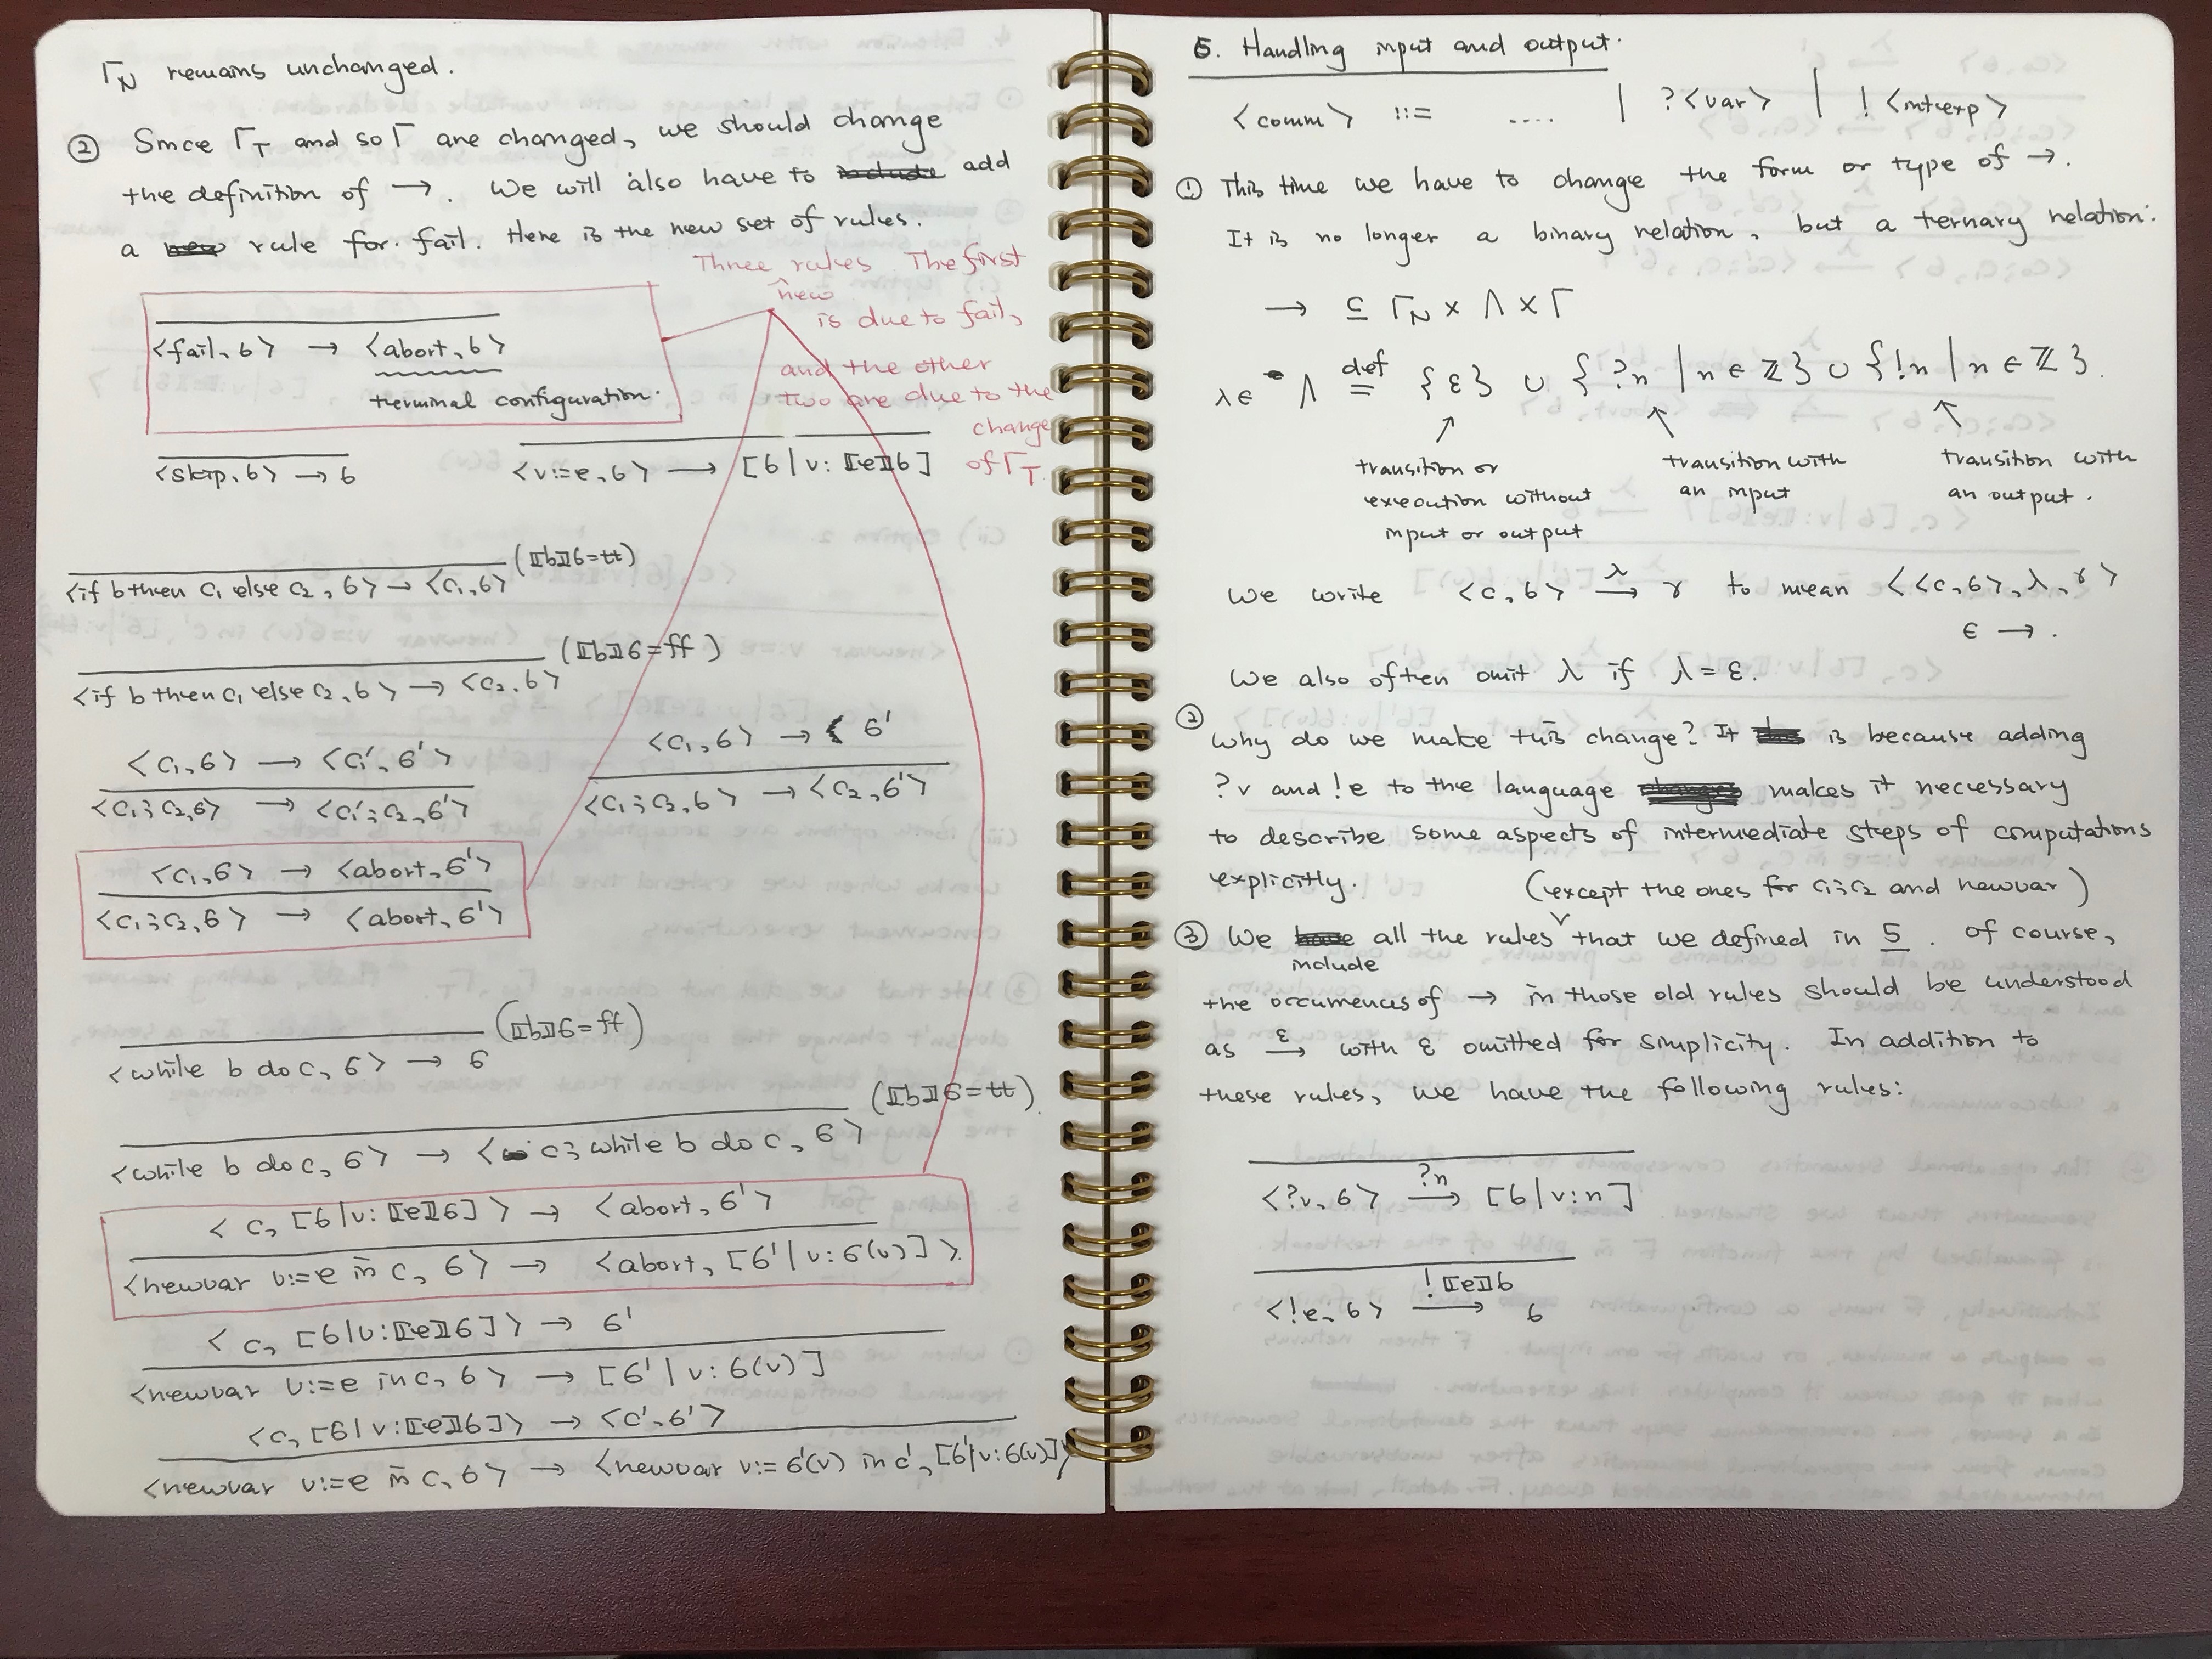 Γ_N remains unchanged.
② Since Γ_T and so Γ are changed, we should change
the definition of →. We will also have to include add
a new rule for fail. Here is the new set of rules.
Three new rules. The first
is due to fail,
and the other
two are due to the
change
of Γ_T.
<fail, σ> → <abort, σ>
terminal configuration.
<skip, σ> → σ
<v:=e, σ> → [σ | v: ⟦e⟧σ]
(⟦b⟧σ=tt)
<if b then c₁ else c₂, σ> → <c₁, σ>
(⟦b⟧σ=ff)
<if b then c₁ else c₂, σ> → <c₂, σ>
<c₁, σ> → <c₁', σ'>
<c₁;c₂, σ> → <c₁';c₂, σ'>
<c₁, σ> → σ'
<c₁;c₂, σ> → <c₂, σ'>
<c₁, σ> → <abort, σ'>
<c₁;c₂, σ> → <abort, σ'>
(⟦b⟧σ=ff)
<while b do c, σ> → σ
(⟦b⟧σ=tt).
<while b do c, σ> → <c; while b do c, σ>
<c, [σ | v: ⟦e⟧σ]> → <abort, σ'>
<newvar v:=e in c, σ> → <abort, [σ' | v: σ(v)]>.
<c, [σ | v: ⟦e⟧σ]> → σ'
<newvar v:=e in c, σ> → [σ' | v: σ(v)]
<c, [σ | v: ⟦e⟧σ]> → <c', σ'>
<newvar v:=e in c, σ> → <newvar v:=σ'(v) in c', [σ' | v: σ(v)]>
6. Handling input and output.
<comm> ::= .... | ?<var> | !<intexp>
① This time we have to change the form or type of →.
It is no longer a binary relation, but a ternary relation:
→ ⊆ Γ_N × Λ × Γ
λ∈ Λ def= {ε} ∪ {?n | n∈ℤ} ∪ {!n | n∈ℤ}.
transition or
execution without
input or output
transition with
an input
transition with
an output.
We write <c, σ> —λ→ γ to mean <<c, σ>, λ, γ>
∈ →.
We also often omit λ if λ = ε.
② Why do we make this change? It this is because adding
?v and !e to the language changes makes it neccessary
to describe some aspects of intermediate steps of computations
explicitly.
(except the ones for c₁;c₂ and newvar)
③ We have include all the rules that we defined in 5. Of course,
the occurrences of → in those old rules should be understood
as —ε→ with ε omitted for simplicity. In addition to
these rules, we have the following rules:
<?v, σ> —?n→ [σ | v:n]
<!e, σ> —!⟦e⟧σ→ σ